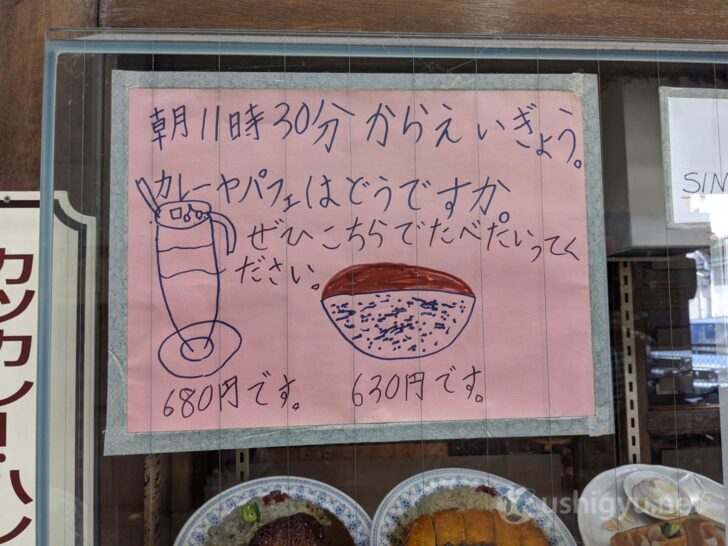 朝11時30分からえいぎょう。
カレーヤパフェはどうですか
ぜひこちらでたべだいってく
ださい。
680円です。
630円です。
カツカレー・ハン
SIN
ushigyu.net